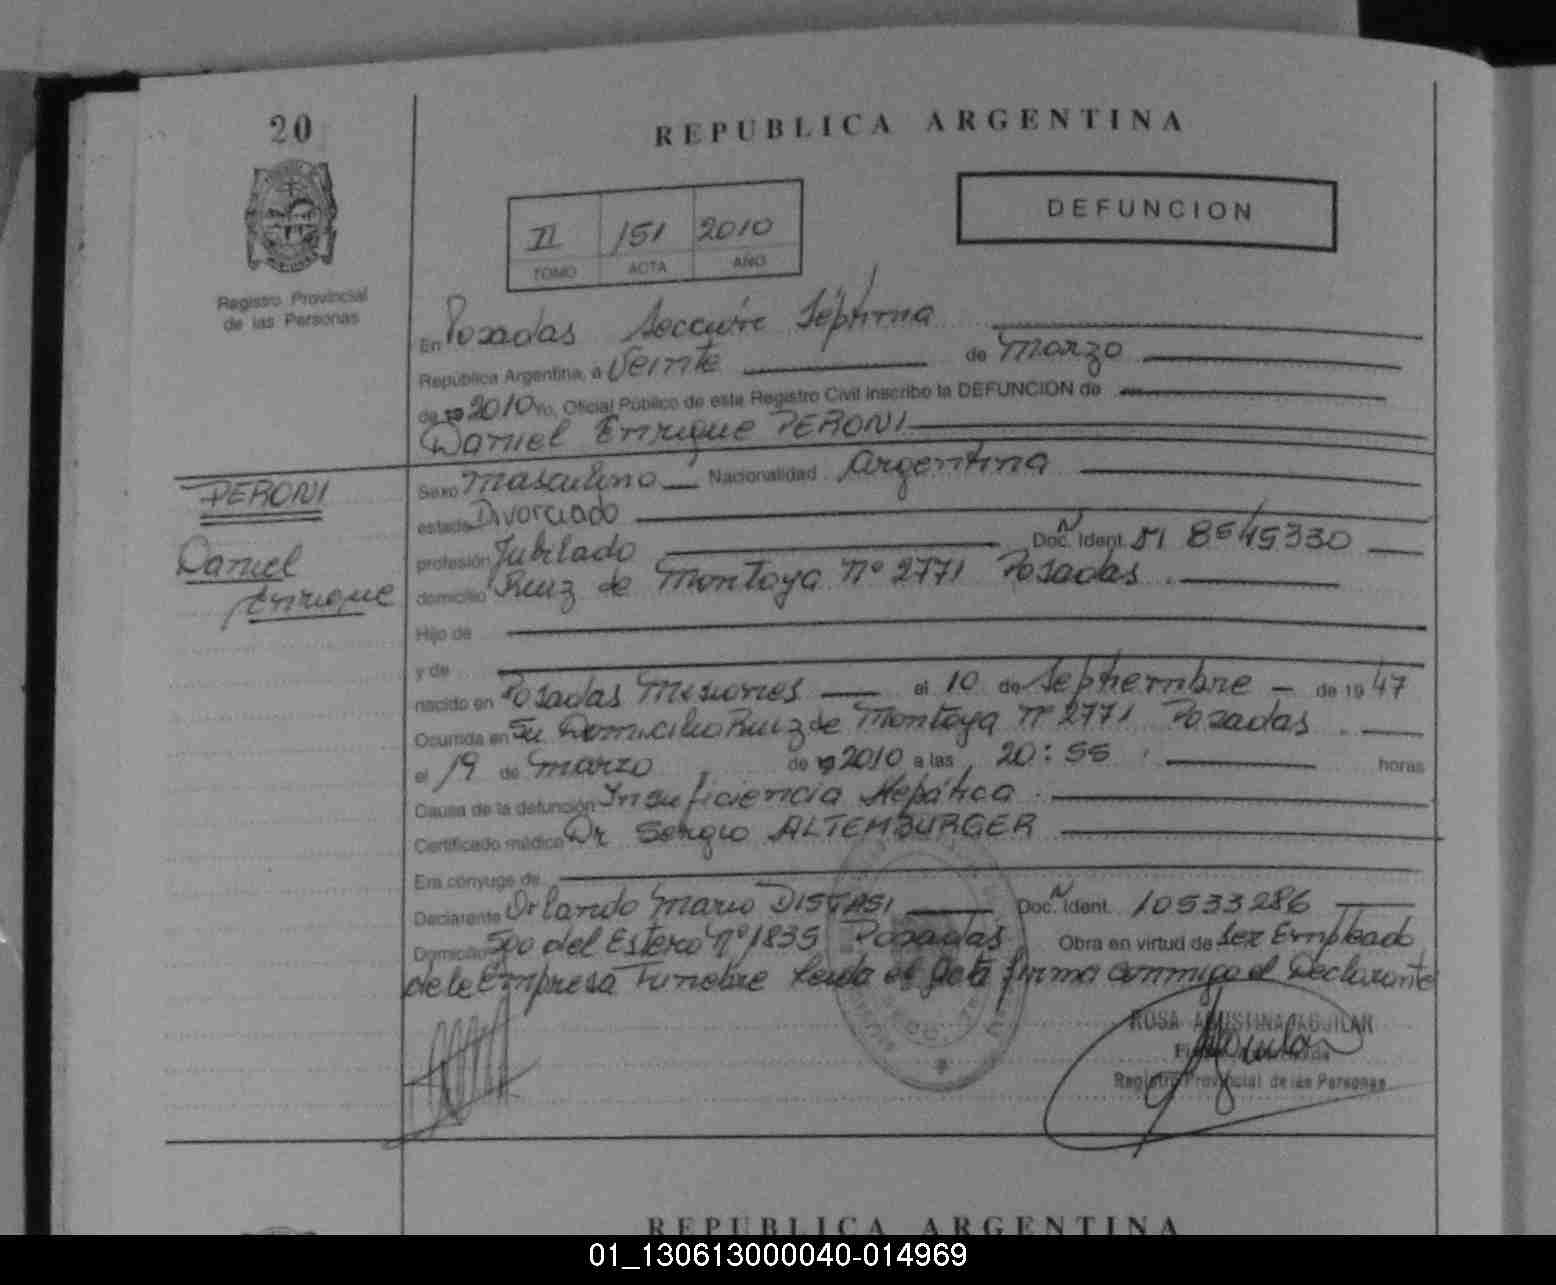 20
REPUBLICA ARGENTINA
DEFUNCION
II 151 2010
TOMO ACTA AÑO
Registro Provincial
de las Personas
En Posadas Sección Séptima
República Argentina, a Veinte de Marzo
de 19 2010 Yo, Oficial Público de este Registro Civil inscribo la DEFUNCION de
Daniel Enrique PERONI
PERONI
Daniel
Enrique
Sexo Masculino Nacionalidad Argentina
estado Divorciado
profesión Jubilado Doc. Ident. M 8545330
domicilio Ruiz de Montoya Nº 2771 Posadas.
Hijo de
y de
nacido en Posadas Misiones el 10 de Septiembre de 19 47
Ocurrida en Su Domicilio Ruiz de Montoya Nº 2771 Posadas.
el 19 de Marzo de 19 2010 a las 20:55 horas
Causa de la defunción Insuficiencia Hepática
Certificado médico Dr Sergio ALTEMBURGER
Era cónyuge de
Declarante Orlando Mario DISTASI Doc. Ident. 10533286
Domicilio Sgo del Estero Nº 1835 Posadas Obra en virtud de ser Empleado
de la Empresa Funebre leida el Acta firma conmigo el Declarante
ROSA AGUSTINA AGUILAR
Registro Provincial de las Personas
REPUBLICA ARGENTINA
01_130613000040-014969